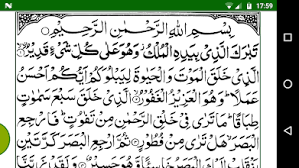 17:59
بِسْمِ اللّٰهِ الرَّحْمٰنِ الرَّحِيْمِ
تَبٰرَكَ الَّذِيْ بِيَدِهِ الْمُلْكُ وَهُوَ عَلٰى كُلِّ شَيْءٍ قَدِيْرُ
الَّذِيْ خَلَقَ الْمَوْتَ وَالْحَيٰوةَ لِيَبْلُوَكُمْ اَيُّكُمْ اَحْسَنُ
عَمَلًا وَهُوَ الْعَزِيْزُ الْغَفُوْرُ الَّذِيْ خَلَقَ سَبْعَ سَمٰوٰتٍ
طِبَاقًا مَا تَرٰى فِيْ خَلْقِ الرَّحْمٰنِ مِنْ تَفٰوُتٍ فَارْجِعِ
الْبَصَرَ هَلْ تَرٰى مِنْ فُطُوْرٍ ثُمَّ ارْجِعِ الْبَصَرَ كَرَّتَيْنِ